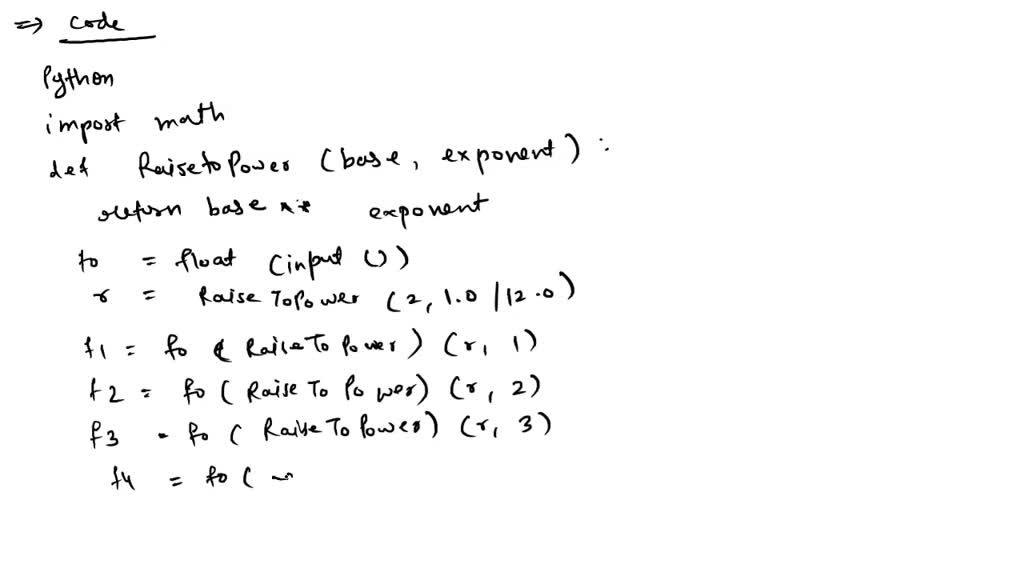 => code
Python
import math
def RaisetoPower (base, exponent) :
return base ** exponent
fo = float (input ())
r = RaiseToPower (2, 1.0 / 12.0)
f1 = fo ( RaiseToPower) (r, 1)
f2 = fo ( RaiseToPower) (r, 2)
f3 = fo ( RaiseToPower) (r, 3)
f4 = fo (